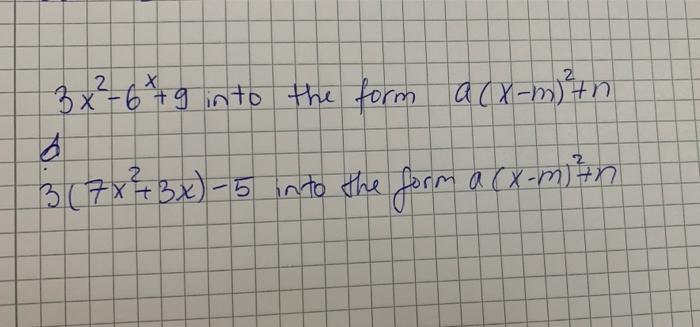 3x²-6ˣ+9 into the form a(x-m)²+n
3(7x²+3x)-5 into the form a(x-m)²+n